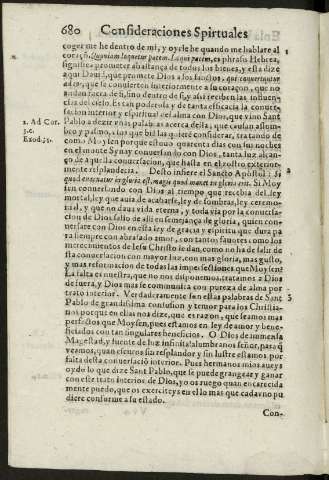 680 Consideraciones Spirtuales
coger me he dentro de mi, y oyre le que quando me hablare al
coraçõ. Quoniam loquetur pacem. Loqui pacem, es phrasis Hebrea,
significa prometer abastança de todos los bienes, y esta dize
aqui Dauid, que promete Dios a los sanctos, qui conuertuntur ad cor,
que se conuierten interiormente a su coraçon, que no
andan fuera de si, sino dentro de si, y assi reciben las influen-
cias del cielo. Es tan poderosa y de tanta eficacia la conuer-
sacion interior y espiritual del alma con Dios, que vino Sant
2. Ad Cor. Pablo a dezir vnas palabras acerca desta, que causan assom-
3.c. bro y pasmo, a los que bié las quieré considerar, tratando de
Exod.31. como Moysen porque estuuo quarenta dias con sus noches
en el monte Synay conuersando con Dios, tanta luz alcan-
ço de aquella conuersacion, que hasta en el rostro exterior-
mente resplandecia. Desto infiere el Sancto Apostol: Si
quod euacuatur in gloria est, magis quod manet in gloria erit. Si Moy
sen conuersando con Dios al tiempo que recebia del ley
mortal, ley que auia de acabarse, ley de sombras, ley ceremo-
nial, y que no daua vida eterna, y toda via por la conuersa-
cion de Dios salio de alli en semejança de gloria, quien con-
uersare con Dios en esta ley de gracia y espiritu que dura pa
ra siempre con abrasado amor, con tantos fauores como los
merecimientos de Iesu Christo le dan, como no ha de salir de
sta conuersacion con mayor luz, con mas gloria, mas gusto,
y mas reformacion de todas las impressiones, que Moysen?
La falta es nuestra, que no nos disponemos, tratamos a Dios
de fuera, y Dios mas se comunica con pureza de alma por
trato interior. Verdaderamente son estas palabras de Sant
Pablo de grandissima confusion y temor para los Christia-
nos porque en ellas nos dize, que en razon, que seamos mas
perfectos que Moysen, pues estamos en ley de amor y bene-
ficiados con tan singulares beneficios. O Dios de inmensa
Magestad, y fuente de luz infinita! alumbranos señor, para q̃
veamos, quan escuros sin resplandor y sin lustre estamos por
falta desta conuersacion interior. Pues hermanos mios aueys
oydo lo que dize Sant Pablo, que se puede grangear y ganar
con este trato interior de Dios, yo os ruego quan encarecida
mente puedo, que os exerciteys en ello mas que cada vno pu
diere conforme a su estado.
Con-